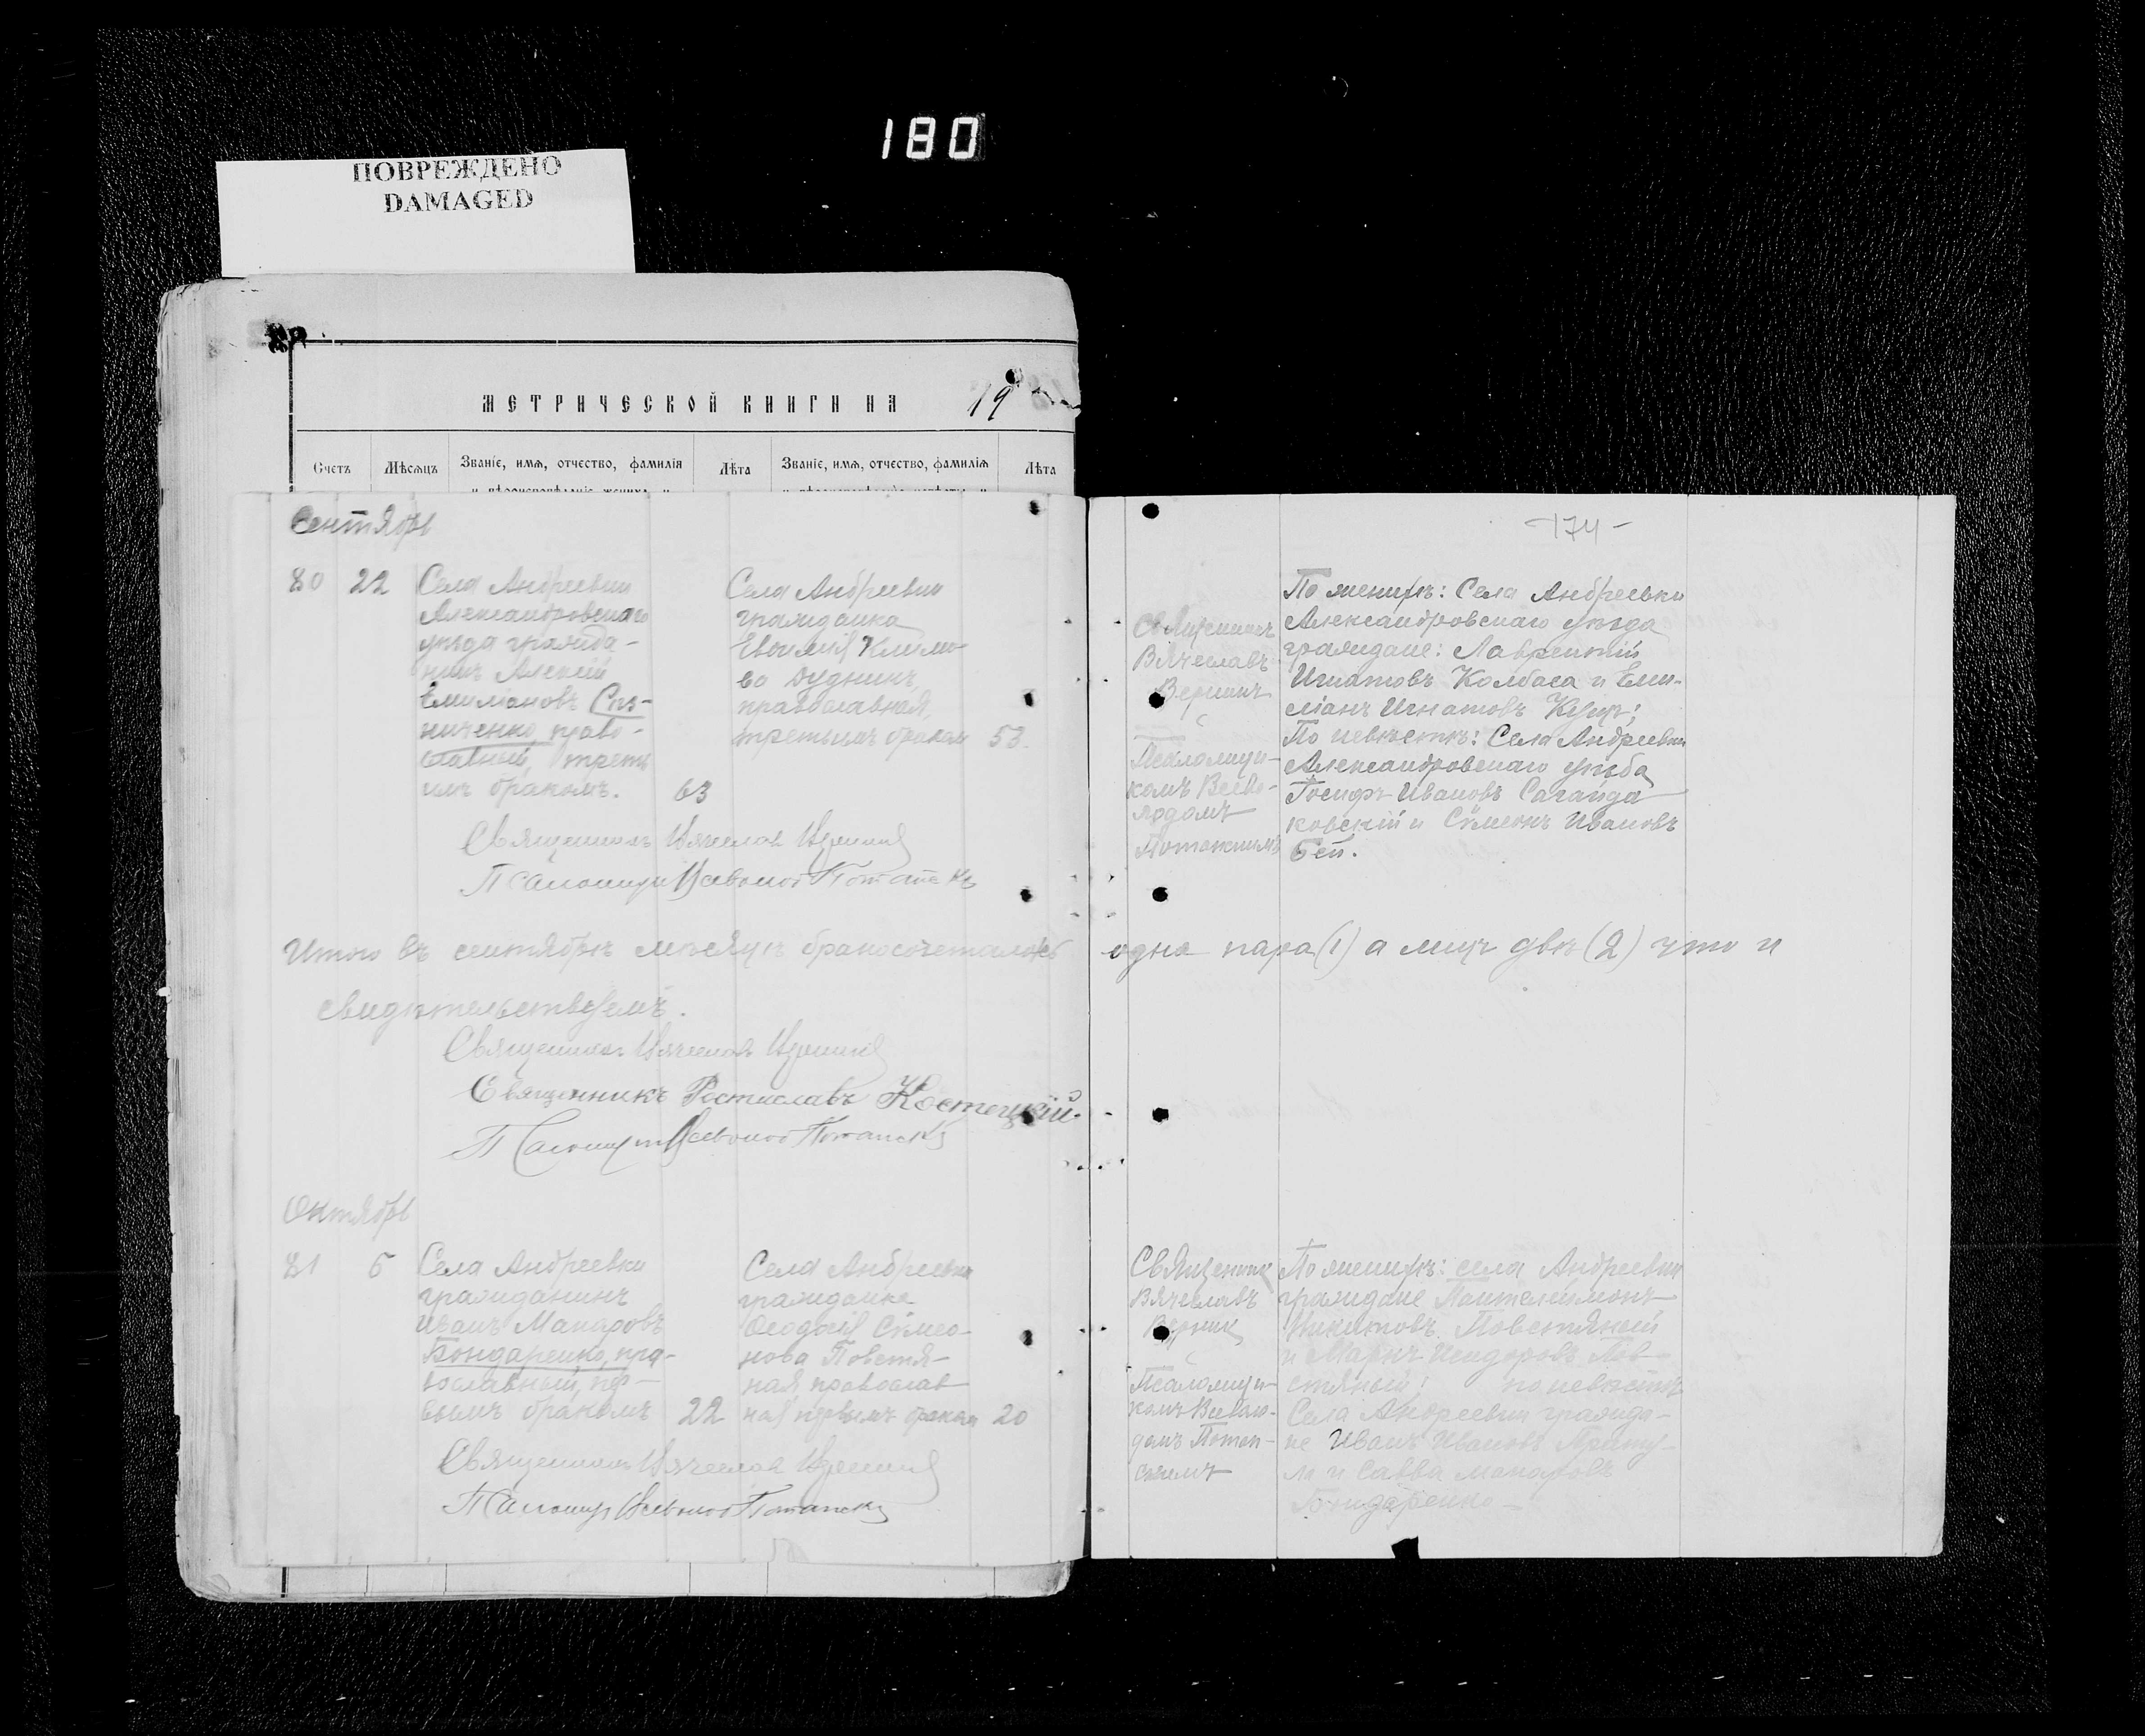 180
ПОВРЕЖДЕНО
DAMAGED
МЕТРИЧЕСКОЙ КНИГИ НА 19
Счетъ
Мѣсяцъ
Званіе, имя, отчество, фамилія
Лѣта
Званіе, имя, отчество, фамилія
Лѣта
Сентябрь
174
80 22
Села Андреевки
Александровскаго
уѣзда гражда-
нинъ Алексій
Емиліановъ
ниченко право-
славный, треть
имъ бракомъ.
63
Села Андреевки
гражданка
Евфимія Климо-
ва Дудникъ
православная,
третьимъ бракомъ
53.
Священникъ
Вячеславъ
Псаломщи-
комъ Всево-
лодомъ
По женихѣ: Села Андреевки
Александровскаго уѣзда
граждане: Лаврентій
Игнатовъ Колбаса и Еми-
ліанъ Игнатовъ
По невѣстѣ: Села Андреевки
Александровскаго уѣзда
Іосифъ Ивановъ Сагайда
ковскій и Сѵмеонъ Ивановъ
Бей.
Священникъ Вячеславъ
Псаломщикъ Всеволод
Итого въ сентябрѣ мѣсяцѣ бракосочеталось одна пара (1) а лицъ двѣ (2) что и
свидѣтельствуемъ.
Священникъ Вячеславъ
Священникъ Ростиславъ Костецкій.
Псаломщикъ Всеволод
Октябрь
81 6
Села Андреевки
гражданинъ
Иванъ Макаровъ
Бондаренко, пра-
вославный, пер-
вымъ бракомъ
22
Села Андреевки
гражданка
Ѳеодосія Сѵмео-
нова Повстя-
ная православ
ная первымъ бракомъ
20
Священникъ
Вячеславъ
Псаломщи-
комъ Всеволо-
домъ
По женихѣ: села Андреевки
граждане Пантелеимонъ
Никитовъ Повстяной
и Исидоровъ Пов-
стяный; по невѣстѣ
Села Андреевки гражда-
не Иванъ Ивановъ
и Савва Макаровъ
Бондаренко
Священникъ Вячеславъ
Псаломщ Всеволод